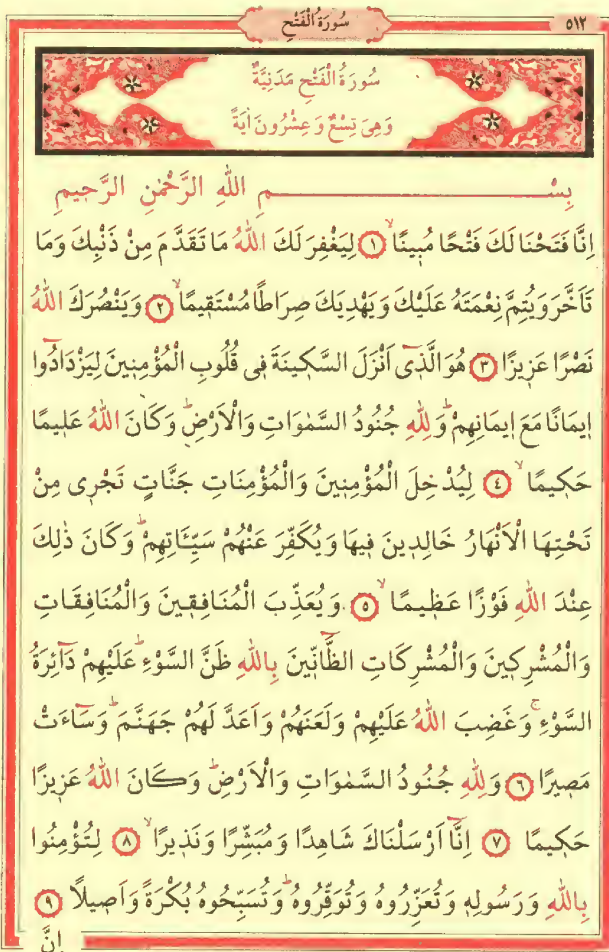 سُورَةُ الْفَتْحِ
٥١٢
سُورَةُ الْفَتْحِ مَدَنِيَّةٌ
وَهِىَ تِسْعٌ وَعِشْرُونَ اٰيَةً
بِسْــــــــــــــــمِ اللّٰهِ الرَّحْمٰنِ الرَّحِيمِ
اِنَّا فَتَحْنَا لَكَ فَتْحًا مُبِينًاۙ ١ لِيَغْفِرَ لَكَ اللّٰهُ مَا تَقَدَّمَ مِنْ ذَنْبِكَ وَمَا
تَاَخَّرَ وَيُتِمَّ نِعْمَتَهُ عَلَيْكَ وَيَهْدِيَكَ صِرَاطًا مُسْتَقِيمًاۙ ٢ وَيَنْصُرَكَ اللّٰهُ
نَصْرًا عَزِيزًا ٣ هُوَ الَّذِٓى اَنْزَلَ السَّكِينَةَ فِى قُلُوبِ الْمُؤْمِنِينَ لِيَزْدَادُٓوا
اِيمَانًا مَعَ اِيمَانِهِمْۜ وَلِلّٰهِ جُنُودُ السَّمٰوَاتِ وَالْاَرْضِۜ وَكَانَ اللّٰهُ عَلِيمًا
حَكِيمًاۙ ٤ لِيُدْخِلَ الْمُؤْمِنِينَ وَالْمُؤْمِنَاتِ جَنَّاتٍ تَجْرِى مِنْ
تَحْتِهَا الْاَنْهَارُ خَالِدِينَ فِيهَا وَيُكَفِّرَ عَنْهُمْ سَيِّئَاتِهِمْۜ وَكَانَ ذٰلِكَ
عِنْدَ اللّٰهِ فَوْزًا عَظِيمًاۙ ٥ وَيُعَذِّبَ الْمُنَافِقِينَ وَالْمُنَافِقَاتِ
وَالْمُشْرِكِينَ وَالْمُشْرِكَاتِ الظَّٓانِّينَ بِاللّٰهِ ظَنَّ السَّوْءِۜ عَلَيْهِمْ دَٓائِرَةُ
السَّوْءِۚ وَغَضِبَ اللّٰهُ عَلَيْهِمْ وَلَعَنَهُمْ وَاَعَدَّ لَهُمْ جَهَنَّمَۜ وَسَٓاءَتْ
مَصِيرًا ٦ وَلِلّٰهِ جُنُودُ السَّمٰوَاتِ وَالْاَرْضِۜ وَكَانَ اللّٰهُ عَزِيزًا
حَكِيمًا ٧ اِنَّٓا اَرْسَلْنَاكَ شَاهِدًا وَمُبَشِّرًا وَنَذِيرًاۙ ٨ لِتُؤْمِنُوا
بِاللّٰهِ وَرَسُولِهِ وَتُعَزِّرُوهُ وَتُوَقِّرُوهُۜ وَتُسَبِّحُوهُ بُكْرَةً وَاَصِيلًا ٩
اِنَّ